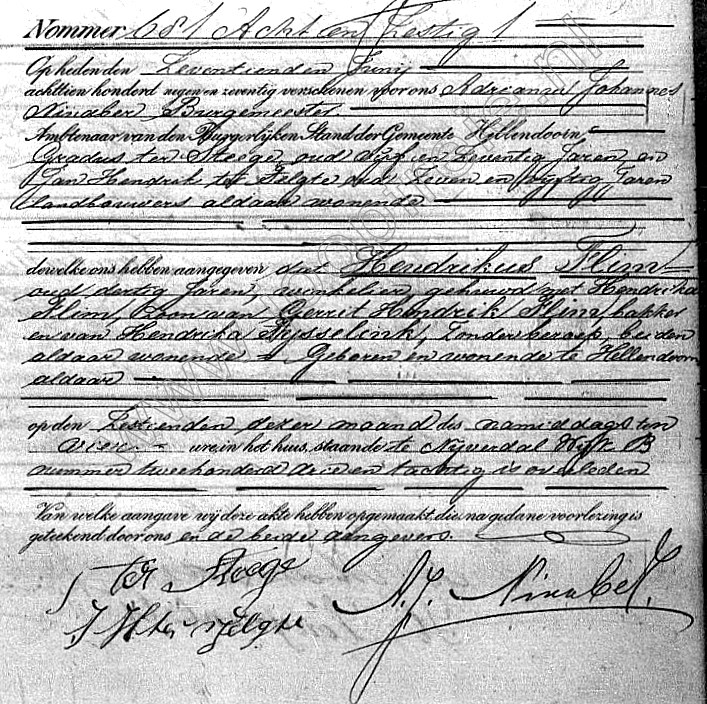 Nommer 68 / Acht en Zestig /
Op heden den Zeventienden Junij
achttien honderd negen en zeventig verschenen voor ons Adrianus Johannes
Ninaber Burgemeester
Ambtenaar van den Burgerlijken Stand der Gemeente Hellendoorn
Gradus ter Steege, oud vijf en Zeventig Jaren, en
Jan Hendrik te oud Zeven en vijftig Jaren
landbouwers aldaar wonende
dewelke ons hebben aangegeven dat Hendrikus Flim
oud dertig Jaren, winkelier, gehuwd met Hendrika
Flim, Zoon van Gerrit Hendrik Flim, bakker
en van Hendrika Nijsselink, Zonder beroep, beiden
aldaar wonende = Geboren en wonende te Hellendoorn
aldaar
op den Zestienden dezer maand des namiddags ten
vier ure, in het huis, staande te Nijverdal Wijk B
nummer tweehonderd drie en tachtig is overleden
Van welke aangave wij deze akte hebben opgemaakt, die, na gedane voorlezing is
geteekend door ons en de beide aangevers.
ter Steege
A.J. Ninaber.
J H te